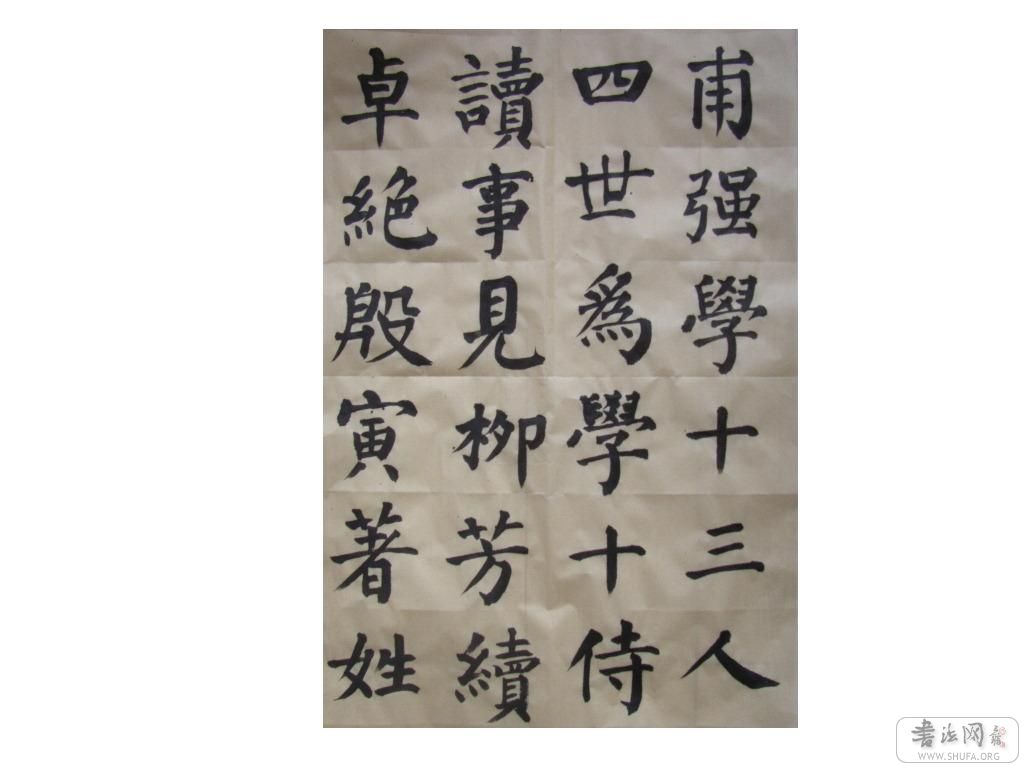 甫强學十三人
四世爲學十侍
讀事見柳芳續
卓絶殷寅著姓
书法网
WWW.SHUFA.ORG